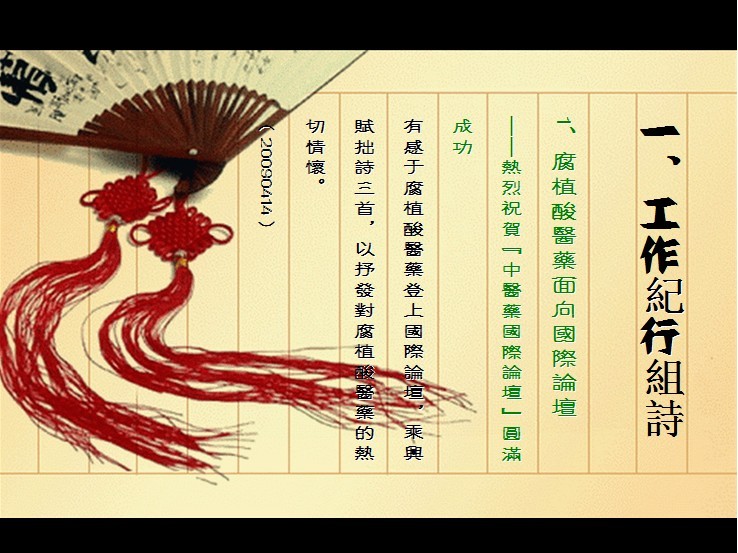 一、工作紀行組詩
1、腐植酸醫藥面向國際論壇
——熱烈祝賀『中醫藥國際論壇』圓滿
成功
有感于腐植酸醫藥登上國際論壇，乘興
賦拙詩三首，以抒發對腐植酸醫藥的熱
切情懷。
（20090414）